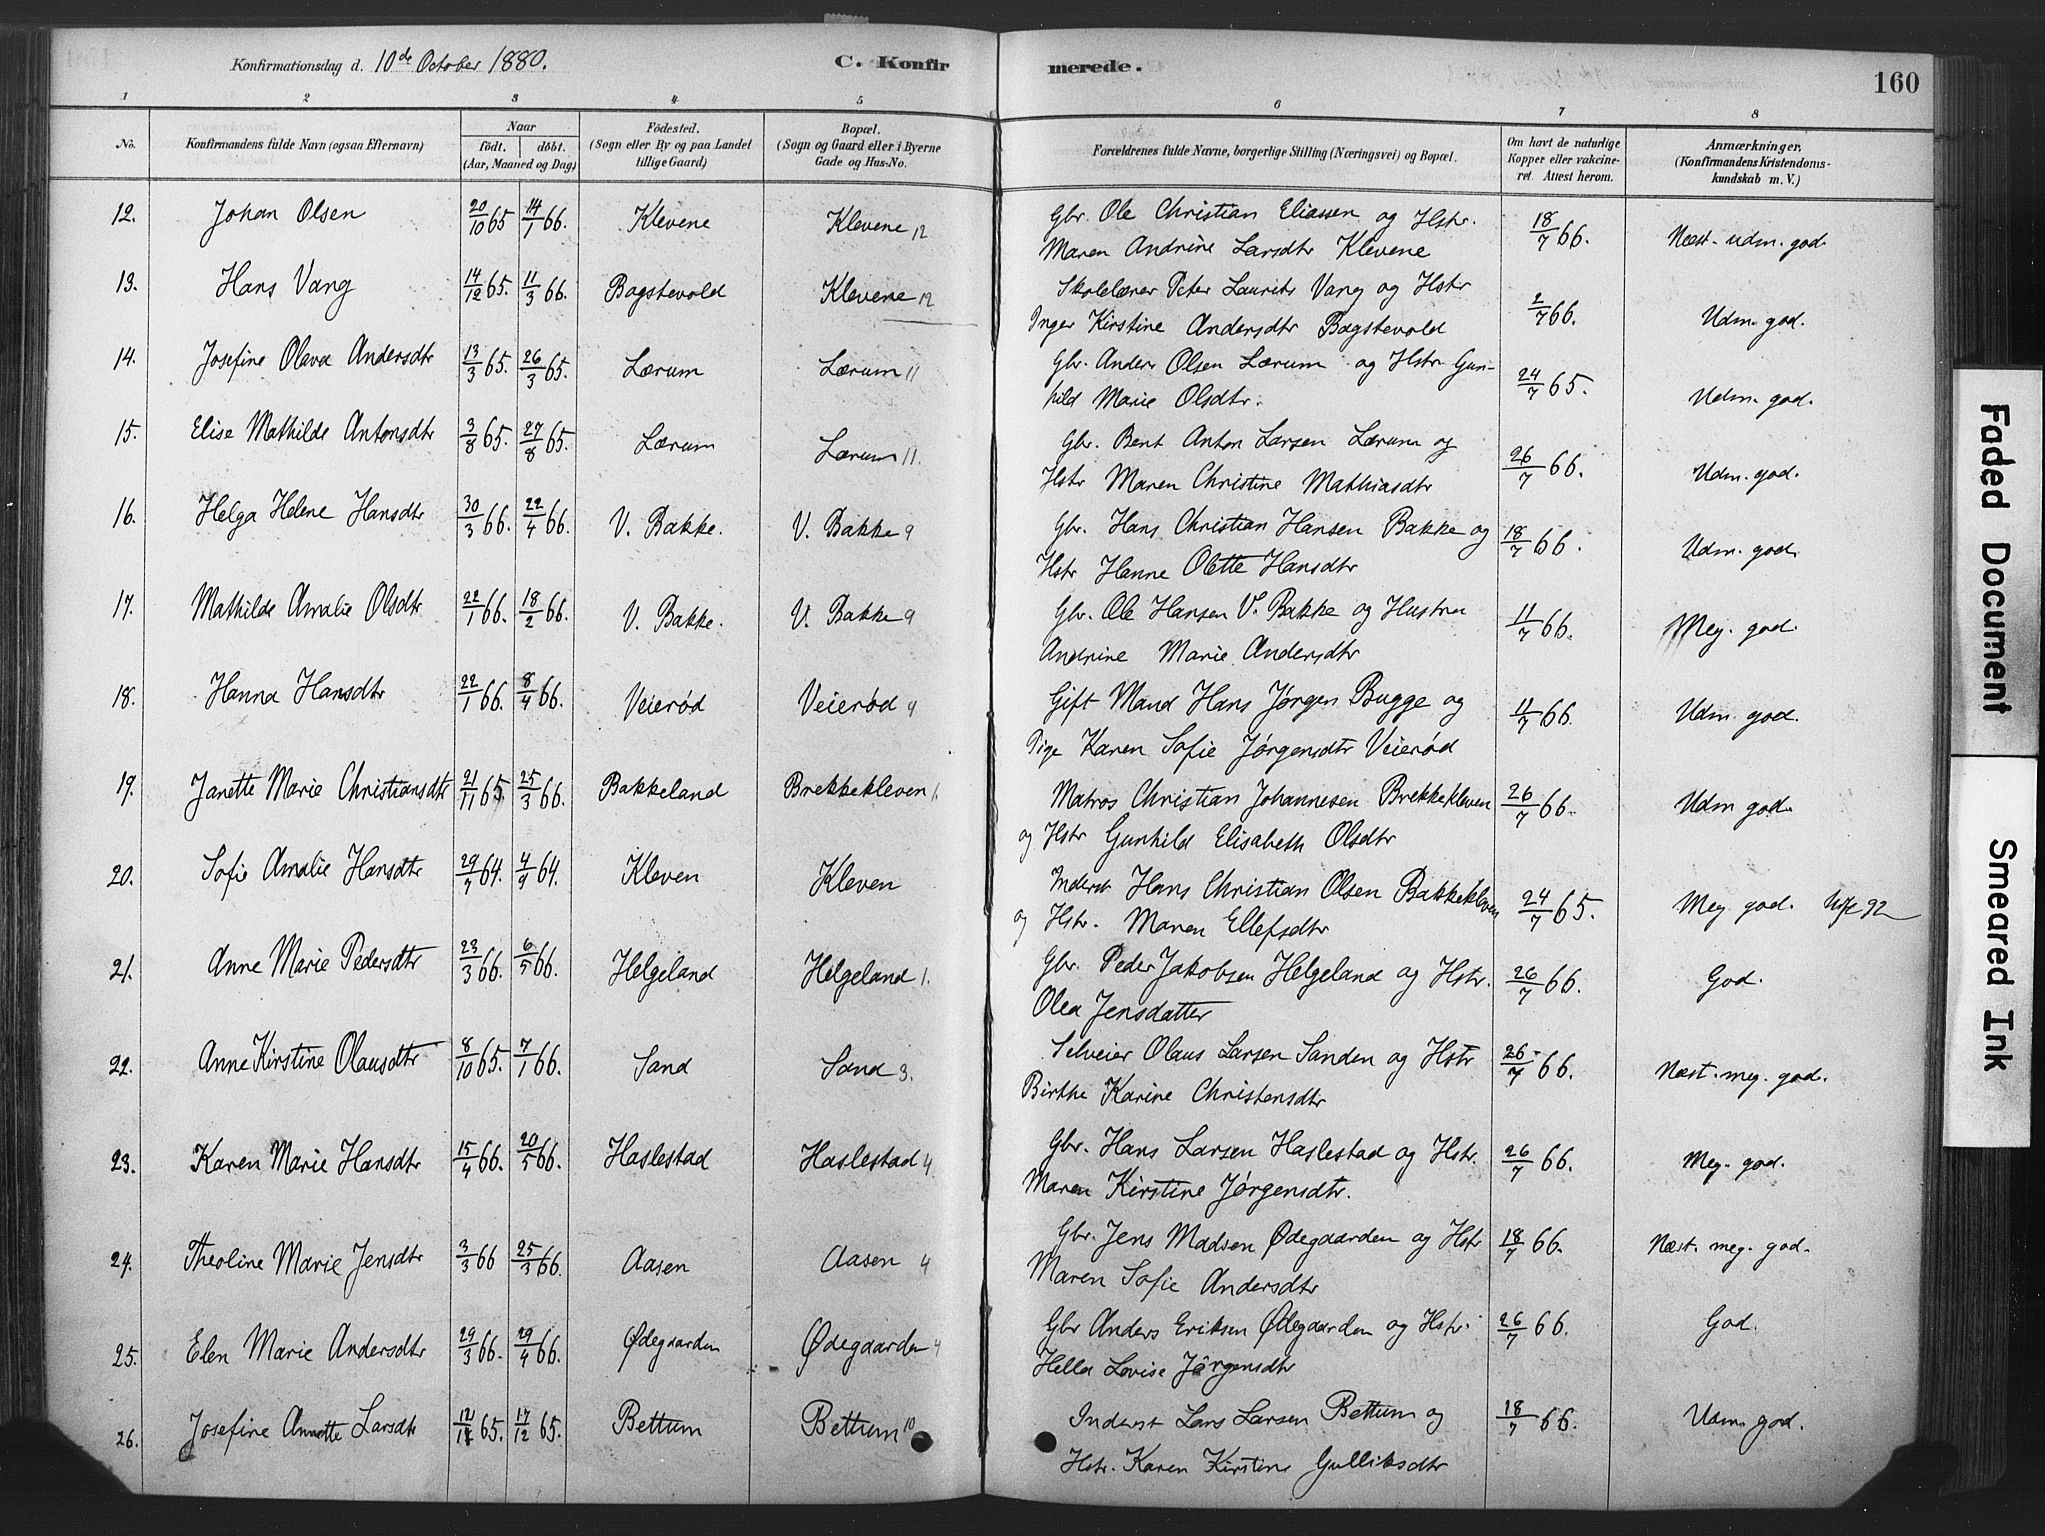 Konfirmationsdag d. 10de October 1880. C. Konfirmerede. 160
1 2 3 4 5 6 7 8
No. Konfirmandens fulde Navn (ogsaa Efternavn) Naar født. døbt. (Aar, Maaned og Dag) Fødested. (Sogn eller By og paa Landet tillige Gaard) Bopæl. (Sogn og Gaard eller i Byerne Gade og Hus-No. Forældrenes fulde Navne, borgerlige Stilling (Næringsvei) og Bopæl. Om havt de naturlige Kopper eller vakcineret. Attest herom. Anmærkninger. (Konfirmandens Kristendomskundskab m. V.)
12. Johan Olsen 20/10 65 14/1 66. Klevene Klevene 12 Gbr. Ole Christian Eliassen og Hstr. 18/7 66. Næst. udm. god.
Maren Andrine Larsdtr Klevene
13. Hans Vang 14/12 65. 11/3 66. Bogstevold Klevene 12 Skolelærer Peter Laurits Vang og Hstr 2/7 66. Udm. god.
Inger Kirstine Andersdtr Bogstevold
14. Josefine Olava Andersdtr 13/3 65. 26/3 65. Lærum Lærum 11 Gbr. Anders Olsen Lærum og Hstr Gun- 24/7 65. Udm. god.
hild Marie Olsdtr.
15. Elise Mathilde Antonsdtr 3/8 65. 27/8 65. Lærum Lærum 11. Gbr. Bent Anton Larsen Lærum og 26/7 66. Udm. god.
Hstr Maren Christine Mathiasdtr
16. Helga Helene Hansdtr 30/3 66. 22/4 66. V. Bakke. V. Bakke 9 Gbr. Hans Christian Hansen Bakke og 18/7 66. Udm. god.
Hstr Hanne Olette Hansdtr
17. Mathilde Amalie Olsdtr 22/1 66. 18/2 66. V. Bakke. V. Bakke 9 Gbr. Ole Hansen V. Bakke og Hustru 11/7 66. Meg. god.
Andrine Marie Andersdtr
18. Hanna Hansdtr 22/1 66. 8/4 66. Veierød Veierød 9 Gift Mand Hans Jørgen Bugge og 11/7 66. Udm. god.
Pige Karen Sofie Jørgensdtr Veierød
19. Janette Marie Christiansdtr 21/11 65 25/3 66. Bakkeland Brekkekleven 1. Matros Christian Johannesen Brekkekleven 26/7 66. Udm god.
og Hstr Gunhild Elisabeth Olsdtr
20. Sofie Amalie Hansdtr 29/7 64. 4/9 64. Kleven Kleven Inderst Hans Christian Olsen Bakkekleven 24/7 65. Meg. god.
og Hstr. Maren Ellefsdtr
21. Anne Marie Pedersdtr 23/3 66. 6/5 66. Helgeland Helgeland 1. Gbr. Peder Jakobsen Helgeland og Hstr. 26/7 66. God.
Olea Jensdatter
22. Anne Kirstine Olausdtr 8/10 65. 7/1 66. Sand Sand 3. Selveier Olaus Larsen Sanden og Hstr 26/7 66. Næst. meg. god.
Birthe Karine Christensdtr
23. Karen Marie Hansdtr 15/4 66. 20/5 66. Haslestad Haslestad 4. Gbr. Hans Larsen Haslestad og Hstr. 26/7 66. Meg. god.
Maren Kirstine Jørgensdtr.
24. Theoline Marie Jensdtr 3/3 66 25/3 66. Aasen Aasen 4 Gbr. Jens Madsen Ødegaarden og Hstr 18/7 66. Næst. meg. god.
Maren Sofie Andersdtr
25. Elen Marie Andersdtr 29/3 66. 29/4 66. Ødegaarden Ødegaarden 4 Gbr Anders Eriksen Ødegaarden og Hstr. 26/7 66. God.
Hella Lovise Jørgensdtr
26. Josefine Annette Larsdtr 12/11 65. 17/12 65. Bettum Bettum 10 Inderst Lars Larsen Bettum og 18/7 66. Udm. god.
Hstr. Karen Kirstine Gulliksdtr
Faded Document
Smeared Ink